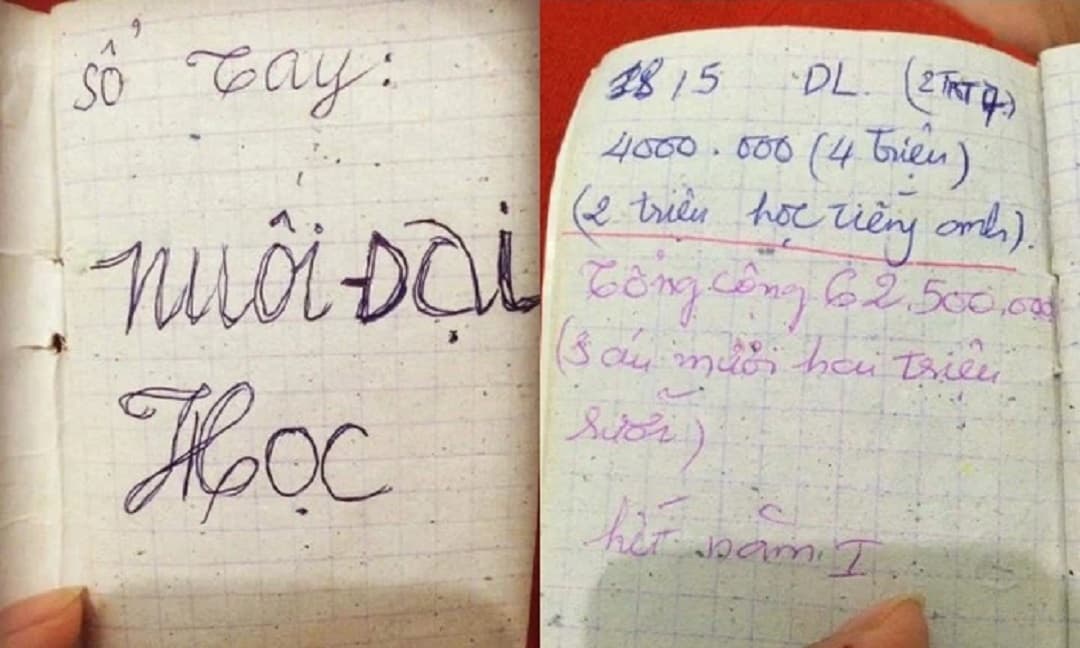 Sổ Tay:
NUÔI ĐẠI
HỌC
18/5 DL. (2
4000.000 (4 Triệu)
(2 triệu học Tiếng anh).
Tổng cộng 62.500.000
(Sáu mươi hai triệu
rưỡi)
hết năm I